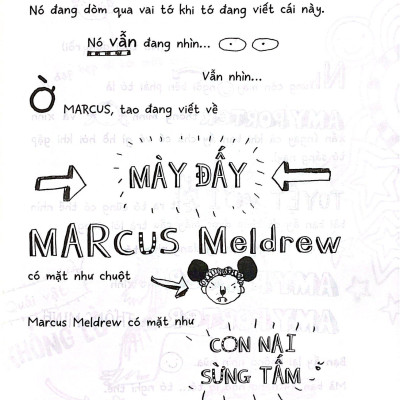 Nó đang dòm qua vai tớ khi tớ đang viết cái này.
Nó vẫn đang nhìn...
Vẫn nhìn...
Ờ MARCUS, tao đang viết về
MÀY ĐẤY
MARCUS Meldrew
có mặt như chuột
Marcus Meldrew có mặt như
CON NAI
SỪNG TẤM